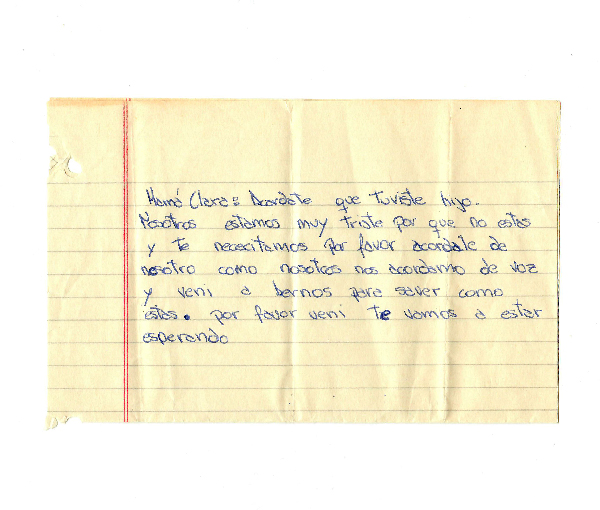 Mamá Clara: Acordate que tuviste hijo.
Nosotros estamos muy triste por que no estas
y te nececitamos por favor acordale de
nosotro como nosotros nos acordamo de voz
y veni a bernos para saver como
estas. por favor veni te vamos a estar
esperando